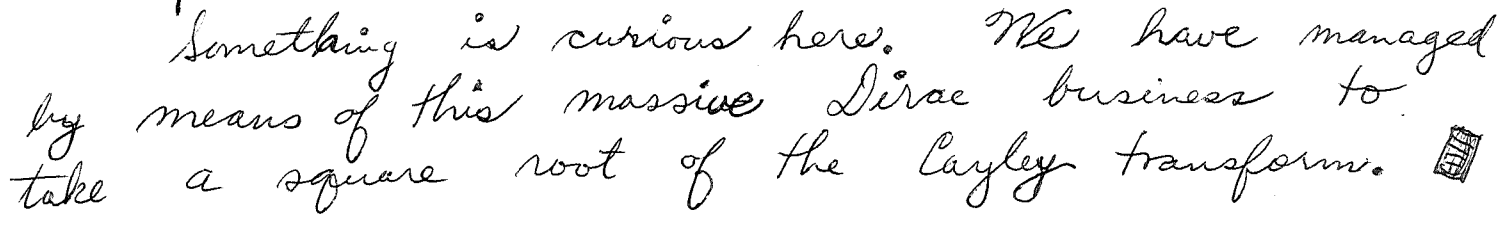 Something is curious here. We have managed
by means of this massive Dirac business to
take a square root of the Cayley transform.